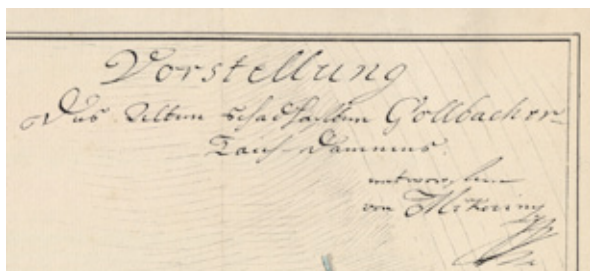 Vorstellung
Des Alten schadhaften Gollbacher-
Teich-Dammes.
entworfen
von Mikoviny